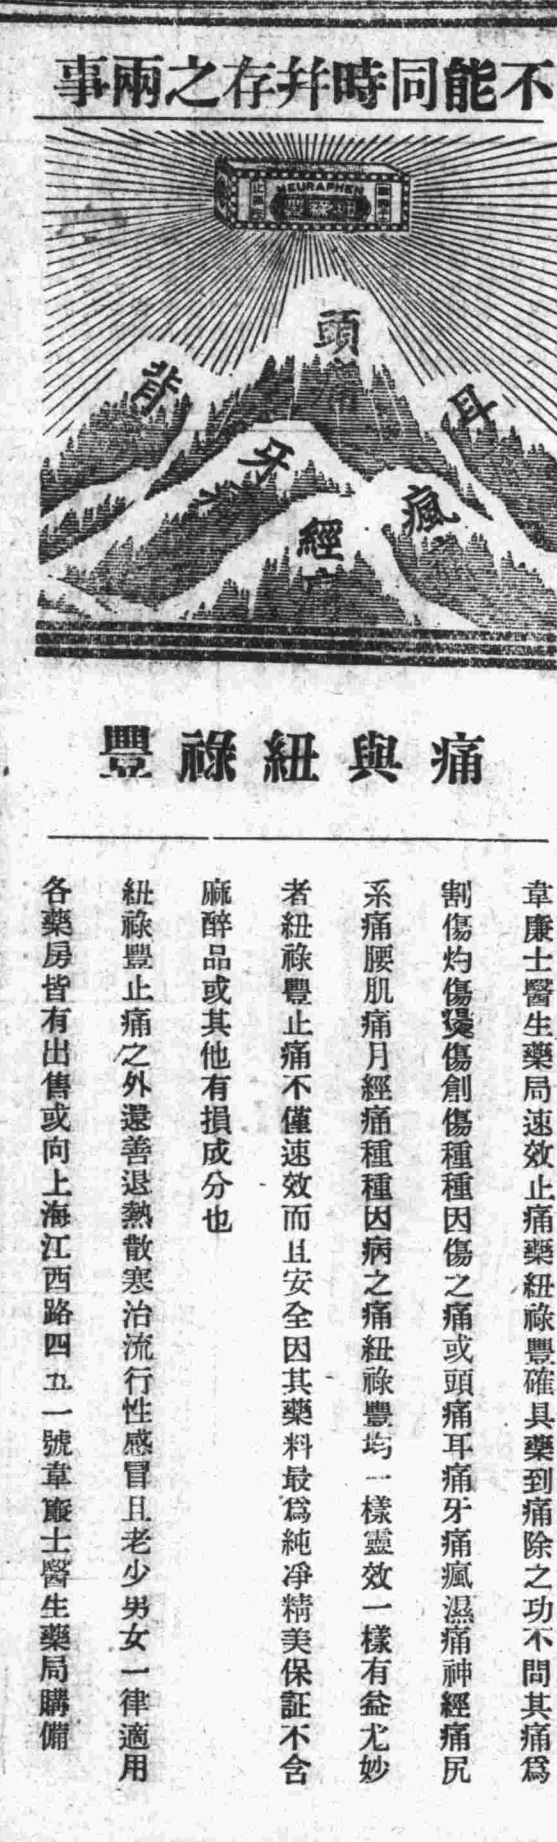 不能同時并存之兩事
NEURAPHEN
頭痛
背
耳
牙
經
瘋
痛與紐祿豐
韋廉士醫生藥局速效止痛藥紐祿豐確具藥到痛除之功不問其痛爲
割傷灼傷燙傷創傷種種因傷之痛或頭痛耳痛牙痛瘋濕痛神經痛尻
系痛腰肌痛月經痛種種因病之痛紐祿豐均一樣靈效一樣有益尤妙
者紐祿豐止痛不僅速效而且安全因其藥料最爲純凈精美保証不含
麻醉品或其他有損成分也
紐祿豐止痛之外還善退熱散寒治流行性感冒且老少男女一律適用
各藥房皆有出售或向上海江西路四五一號韋廉士醫生藥局購備